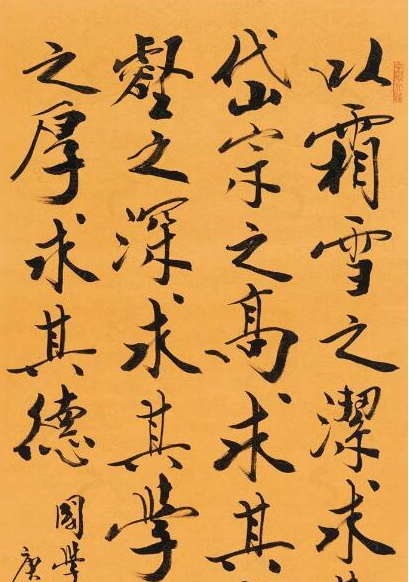 以霜雪之潔求
岱宗之高求其
壑之深求其學
之厚求其德
國學
庚